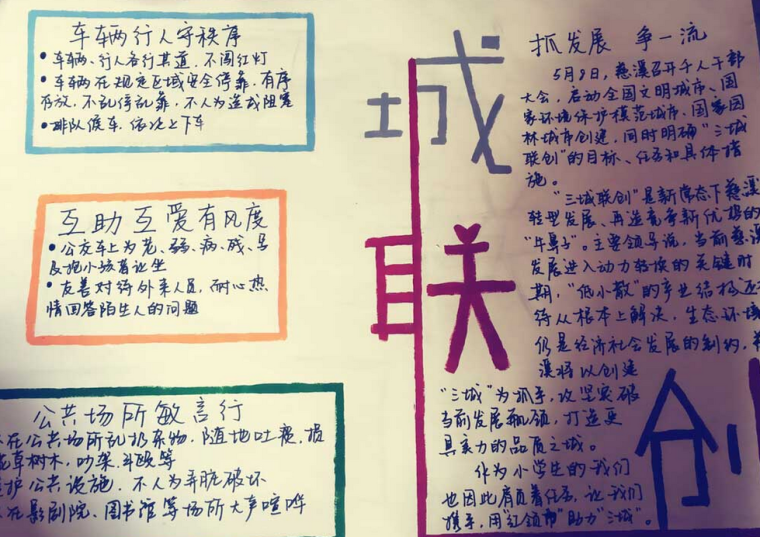 车辆行人守秩序
• 车辆、行人各行其道,不闯红灯
• 车辆在规定区域安全停靠,有序
存放,不乱停乱靠,不人为造成阻塞
• 排队候车,依次上下车
互助互爱有风度
• 公交车上为老、弱、病、残、孕
及抱小孩者让坐
• 友善对待外来人员,耐心热
情回答陌生人的问题
公共场所敏言行
在公共场所乱扔杂物,随地吐痰,损
花草树木,吵架、斗殴等
护公共设施,不人为弄脏破坏
在影剧院、图书馆等场所大声喧哗
城
联
创
抓发展 争一流
5月8日,慈溪召开千人干部
大会,启动全国文明城市、国
家环境保护模范城市、国家园
林城市创建,同时明确“三城
联创”的目标、任务和具体措
施。
“三城联创”是新常态下慈溪
转型发展、再造竞争新优势的
“牛鼻子”。主要领导说,当前慈溪
发展进入动力转换的关键时
期,“低小散”的产业结构还
待从根本上解决,生态环境
仍是经济社会发展的制约,慈
溪将以创建
“三城”为抓手,攻坚突破
当前发展瓶颈,打造更
具实力的品质之城。
作为小学生的我们
也因此肩负着任务,让我们
携手,用“红领巾”助力“三城”。